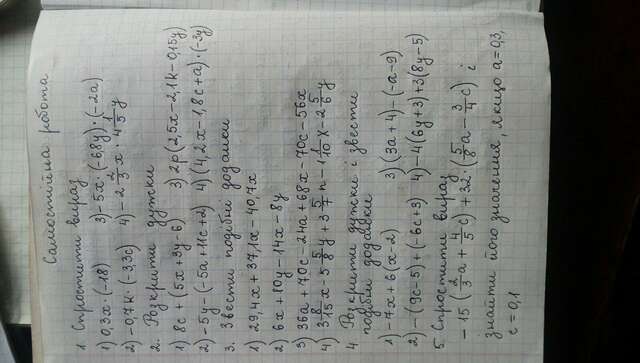 Самостійна робота
1. Спростити вираз
1) 0,3x·(-1,8) 3) -5x·(-6,8y)·(-2a)
2) -0,7k·(-3,3c) 4) -2 2/3 x · 4 1/5 y
2. Розкрити дужки
1) 8c-(5x+3y-6) 3) 2p(2,5x-2,1k-0,15y)
2) -5y-(-5a+11c+2) 4) (4,2x-1,8c+a)·(-3y)
3. Звести подібні доданки
1) 29,4x+37,1x-40,7x
2) 6x+10y-14x-8y
3 36a+70c-24a+68x-70c-56x
4) 3 8/15 x - 5 5/8 y + 3 5/7 n - 1 1/10 x - 2 5/6 y
4 Розкрити дужки і звести
подібні доданки
1) -7x+6(x-2) 3) (3a+4)-(-a-9)
2) -(9c-5)+(-6c+3) 4) -4(6y+3)+3(8y-5)
5. Спростити вираз
-15(2/3 a + 4/5 c)+32·(5/8 a - 3/4 c) і
знайти його значення, якщо a=0,3,
c=0,1